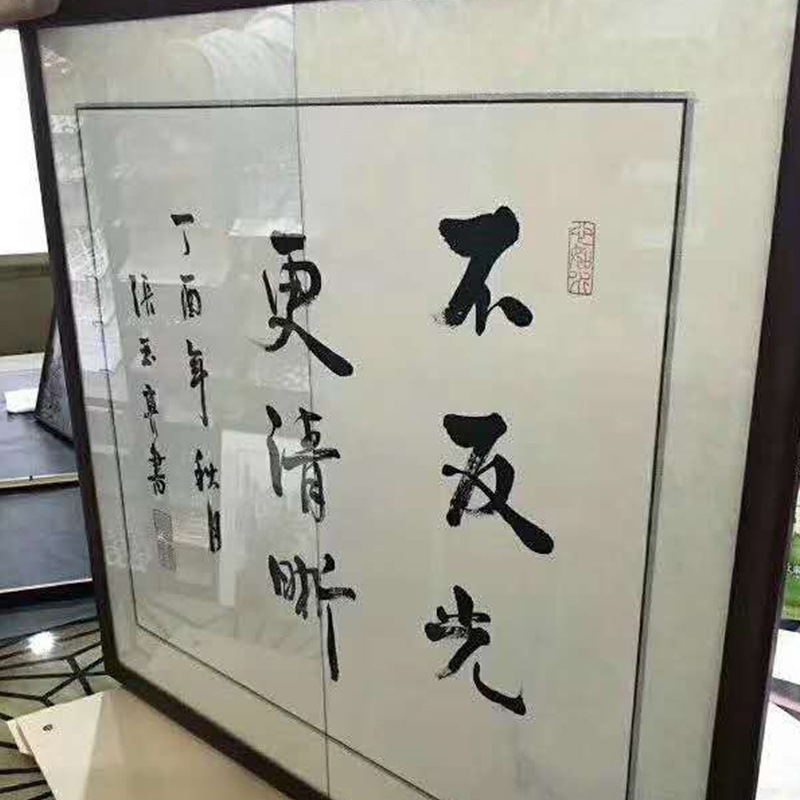 不反光
更清晰
丁酉年秋月
张玉亭书